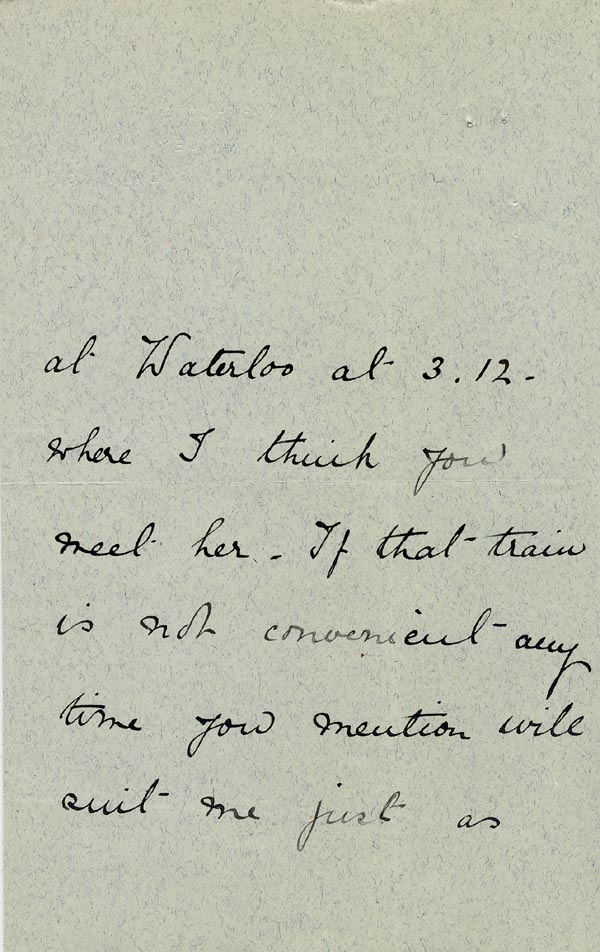 at Waterloo at 3.12-
where I think you
meet her - If that train
is not convenient any
time you mention will
suit me just as